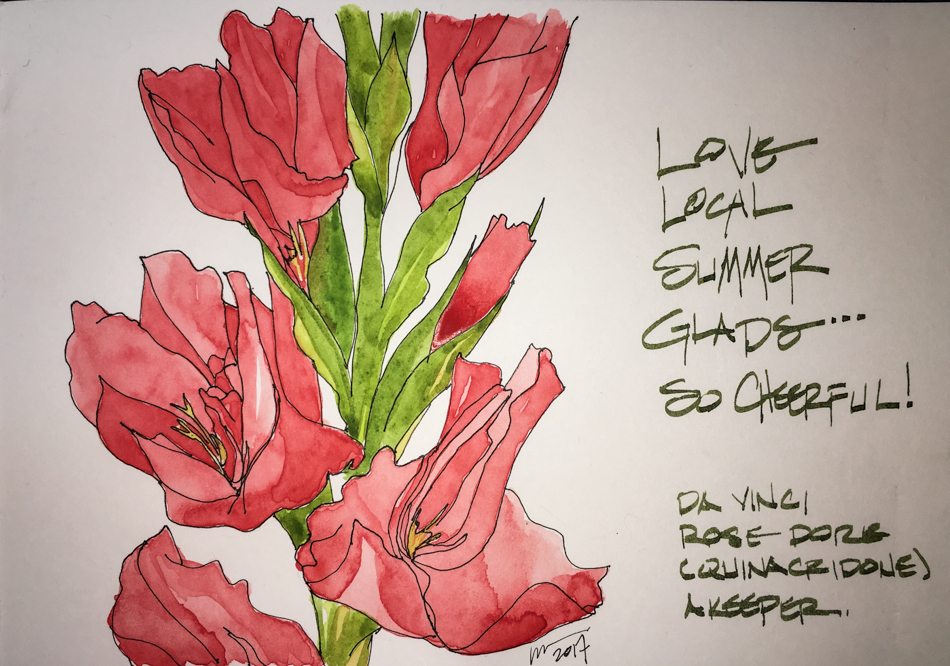 LOVE
LOCAL
SUMMER
GLADS...
SO CHEERFUL!
DA VINCI
ROSE DORE
(QUINACRIDONE)
A KEEPER.
2017